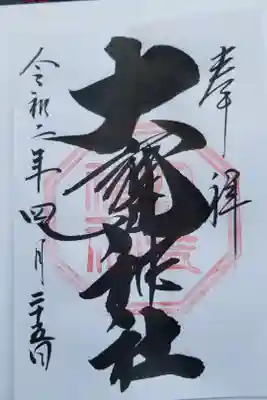 奉拝
大龍神社
令和二年四月二十五日